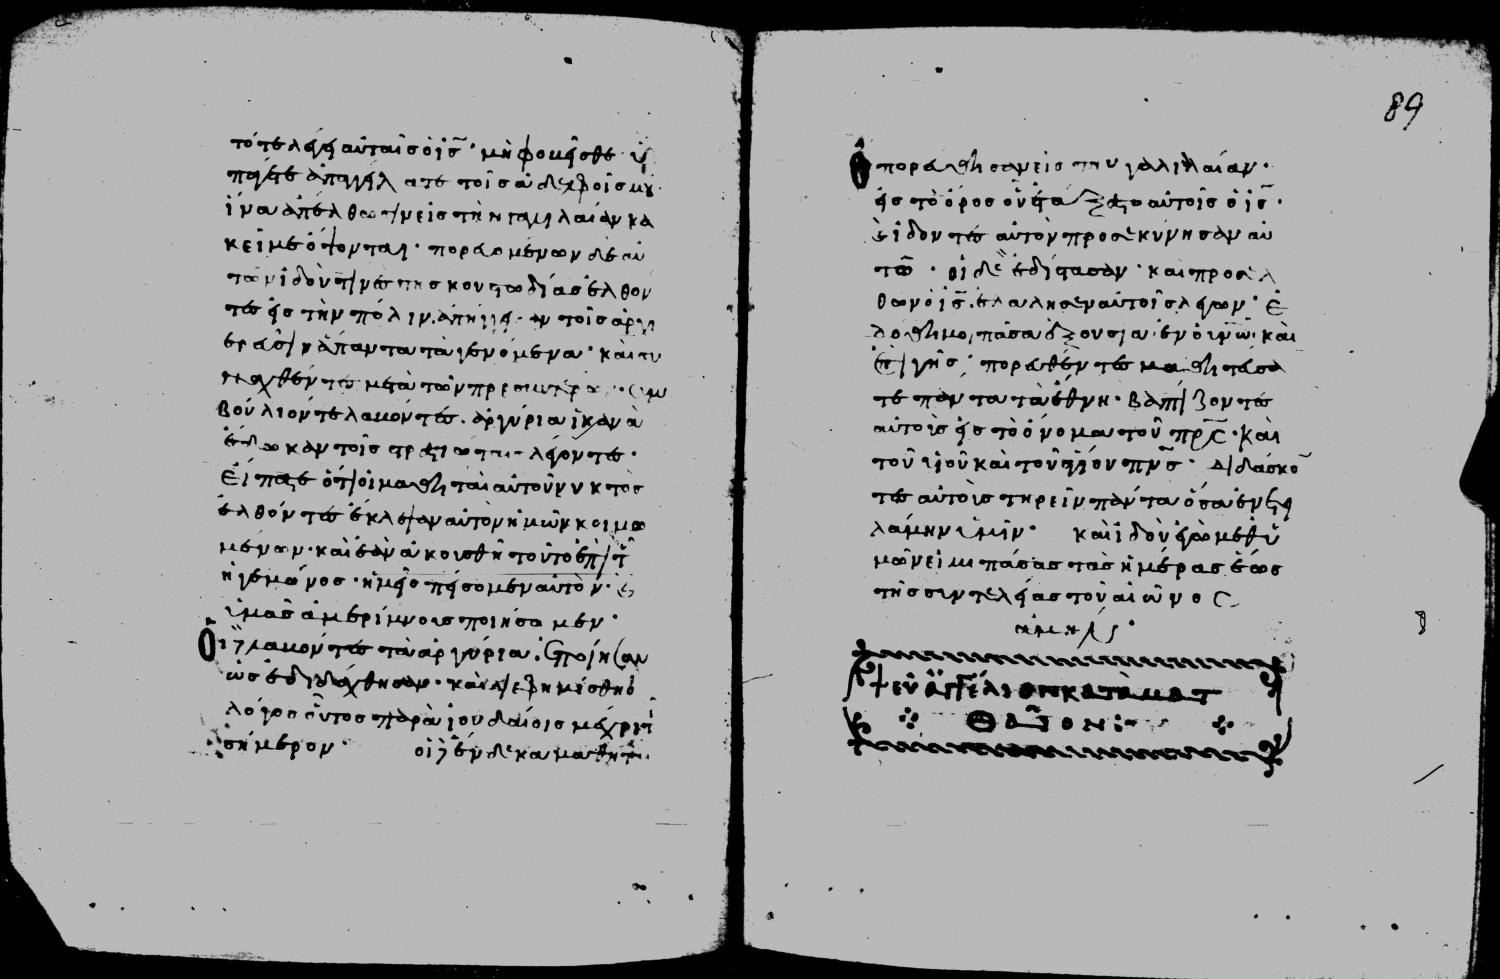 τότε λέγει αὐταῖς ὁ ις̅· μὴ φοβεῖσθε· ὑ
πάγετε ἀπαγγείλατε τοῖς ἀδελφοῖς μου·
ἵνα ἀπέλθωσιν εἰς τὴν γαλιλαίαν κα
κεῖ με ὄψονται· πορευομένων δὲ αὐ
τῶν ἰδού τινες τῆς κουστωδίας ἐλθόν
τες εἰς τὴν πόλιν. ἀπήγγειλαν τοῖς ἀρχι
ερεῦσιν ἅπαντα τὰ γενόμενα· καὶ συ
ναχθέντες μετὰ τῶν πρεσβυτέρων· συμ
βούλιόν τε λαβόντες. ἀργύρια ἱκανὰ
ἔδωκαν τοῖς στρατιώταις λέγοντες·
Εἴπατε ὅτι οἱ μαθηταὶ αὐτοῦ νυκτὸς
ἐλθόντες ἔκλεψαν αὐτὸν ἡμῶν κοιμω
μένων· καὶ ἐὰν ἀκουσθῇ τοῦτο ἐπὶ τοῦ
ἡγεμόνος· ἡμεῖς πείσομεν αὐτόν·
ὑμᾶς ἀμερίμνους ποιήσομεν·
Οἱ δὲ λαβόντες τὰ ἀργύρια. ἐποίησαν
ὡς ἐδιδάχθησαν· καὶ διεφημίσθη ὁ
λόγος οὗτος παρὰ ἰουδαίοις μέχρι τῆς
σήμερον· οἱ δὲ ἕνδεκα μαθηταὶ
89
ἐπορεύθησαν εἰς τὴν γαλιλαίαν·
εἰς τὸ ὄρος οὗ ἐτάξατο αὐτοῖς ὁ ις̅·
ἰδόντες αὐτὸν προσεκύνησαν αὐ
τῶ· οἱ δὲ ἐδίστασαν· καὶ προσελ
θὼν ὁ ις̅. ἐλάλησεν αὐτοῖς λέγων· Ἐ
δόθη μοι πᾶσα ἐξουσία ἐν οὐνῶ· καὶ
ἐπὶ γῆς· πορευθέντες μαθητεύσα
τε πάντα τὰ ἔθνη· βαπτίζοντες
αὐτοὺς εἰς τὸ ὄνομα τοῦ πρς· καὶ
τοῦ υἱοῦ καὶ τοῦ ἁγίου πνς· διδάσκο
τες αὐτοὺς τηρεῖν πάντα ὅσα ἐνετει
λάμην ὑμῖν· καὶ ἰδοὺ ἐγὼ μεθ' ὑ
μῶν εἰμι πάσας τὰς ἡμέρας ἕως
τῆς συντελείας τοῦ αἰῶνος
ἀμήν·
+ εὐαγγέλιον κατὰ ματ
Θαῖον:-